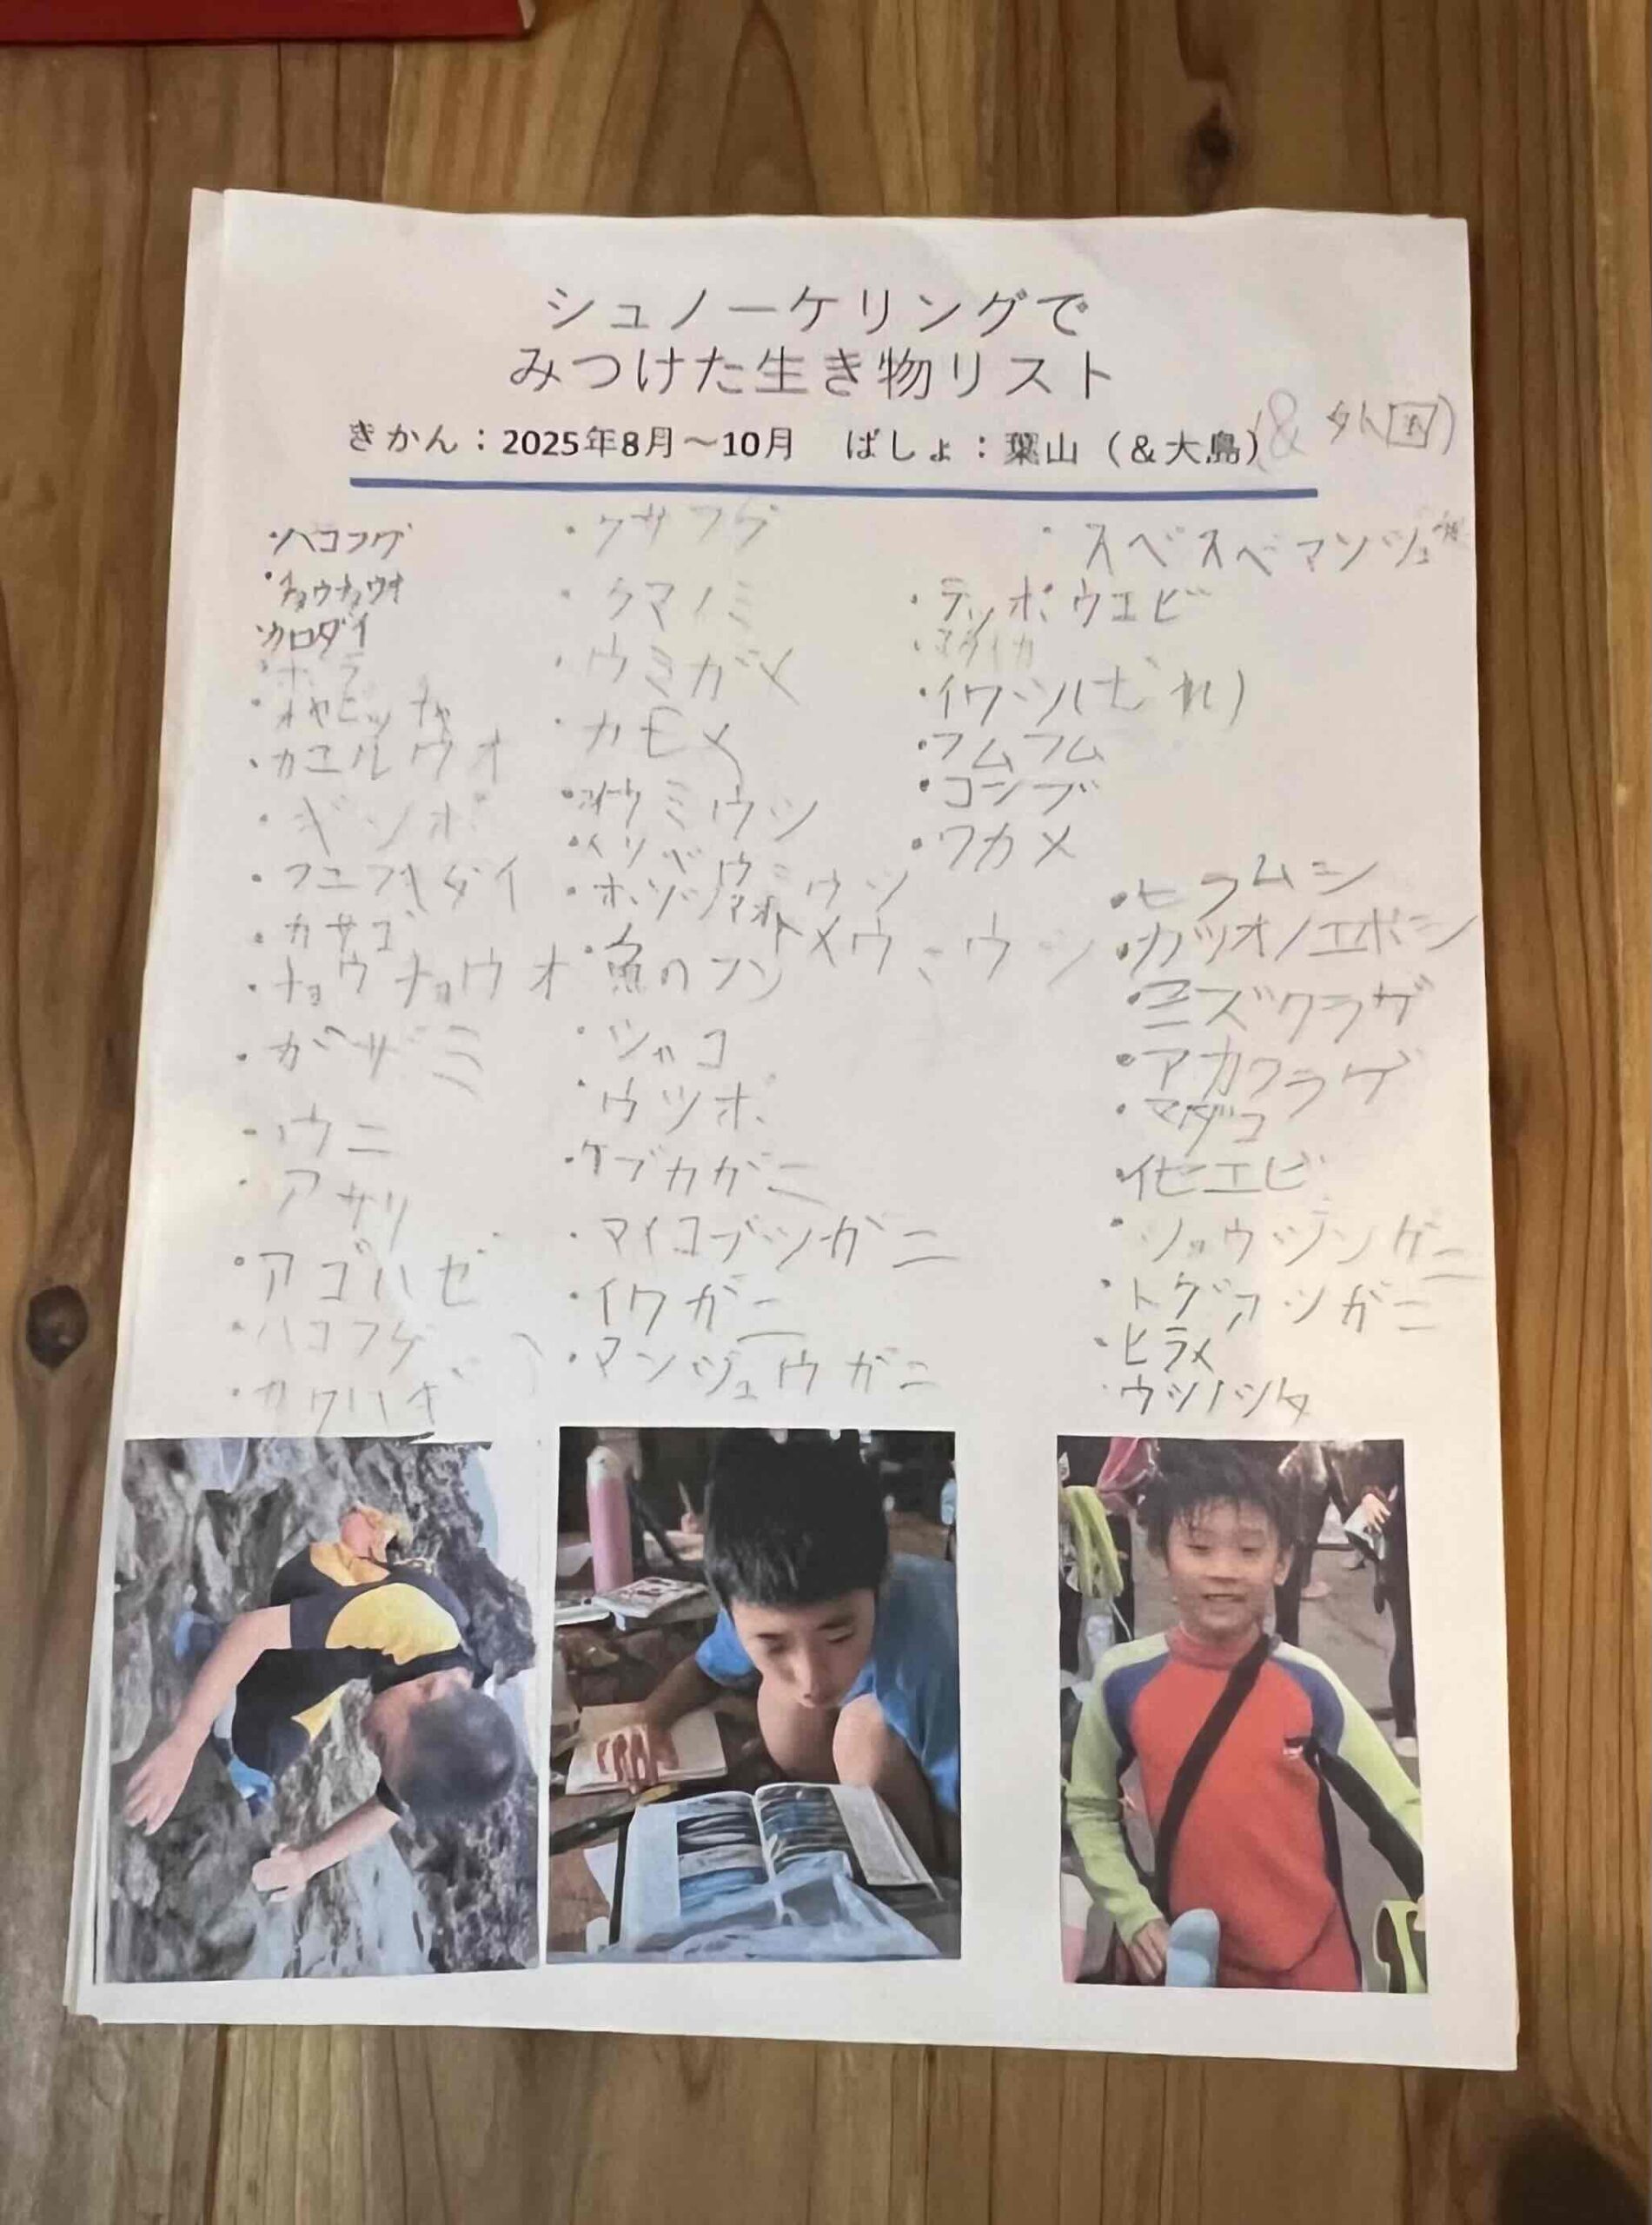 シュノーケリングで
みつけた生き物リスト
きかん：2025年8月～10月　ばしょ：葉山（&大島）(& 外国)
・ハコフグ
・チョウチョウウオ
・クロダイ
・ボラ
・オヤビッチャ
・カエルウオ
・ギンポ
・フエフキダイ
・カサゴ
・チョウチョウウオ
・ガザミ
・ウニ
・アサリ
・アゴハゼ
・ハコフグ
・カワハギ
・クサフグ
・クマノミ
・ウミガメ
・カモメ
・アオウミウシ
・ウミウシ
・魚のフン
・シャコ
・ウツボ
・ケブカガニ
・マイコブシガニ
・イワガニ
・マンジュウガニ
・スベスベマンジュウ
・テッポウエビ
・イワシ(むれ)
・フムフム
・コンブ
・ワカメ
・ヒラムシ
・カツオノエボシ
・ミズクラゲ
・アカクラゲ
・マダコ
・イセエビ
・ショウジンガニ
・トゲアシガニ
・ヒラメ
・ウシノシタ